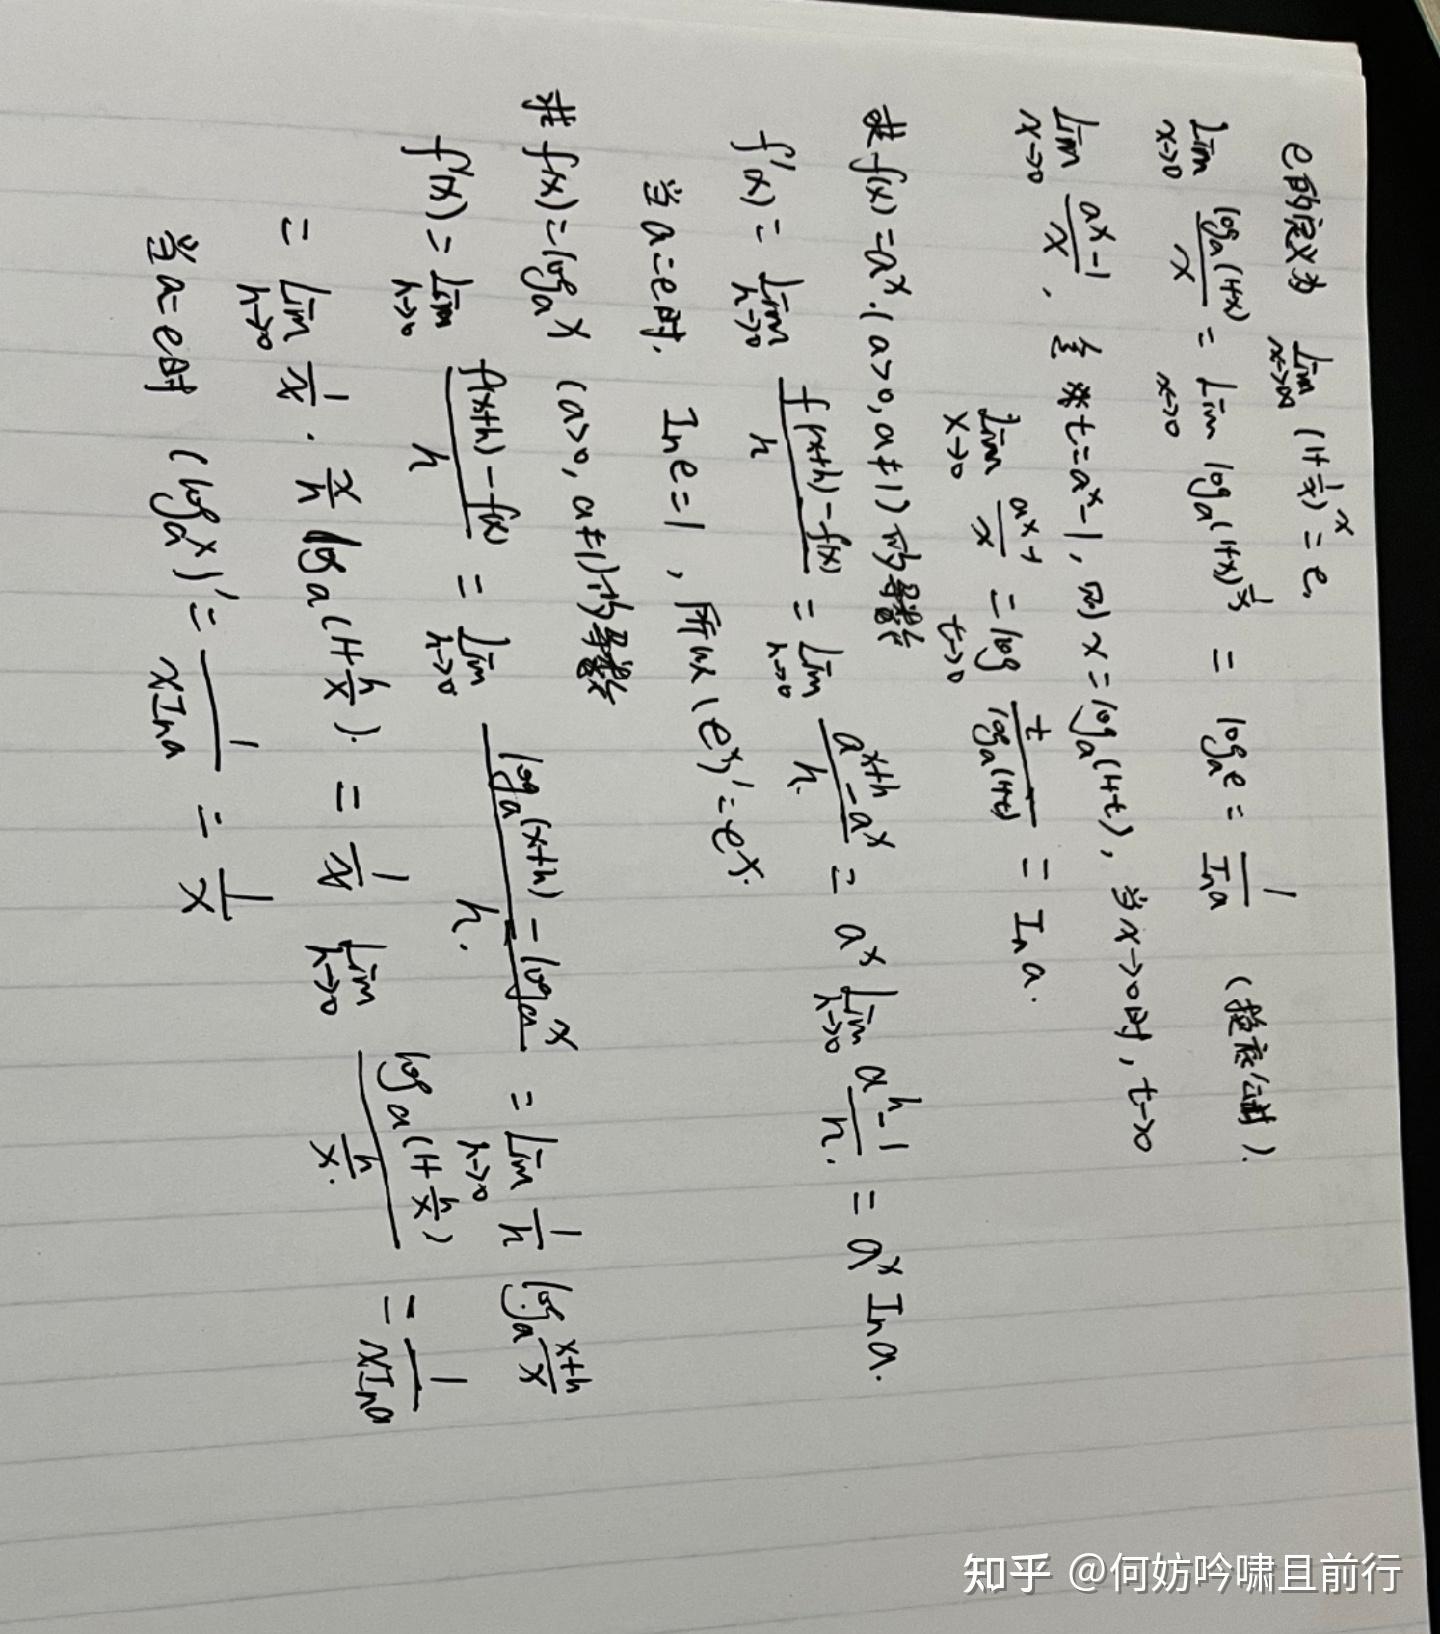 e的定义为 lim x→∞ (1+1/x)^x = e.
lim x→0 log a (1+x) / x = lim x→0 log a (1+x)^(1/x) = log a e = 1/Ina (换底公式).
lim x→0 (a^x-1)/x , 令 t=a^x-1, 则 x=log a (1+t), 当x→0时, t→0
lim x→0 (a^x-1)/x = log t→0 t/log a (1+t) = Ina.
求 f(x)=a^x.(a>0,a≠1)的导数
f'(x) = lim h→0 (f(x+h)-f(x))/h = lim h→0 (a^(x+h)-a^x)/h. = a^x lim h→0 (a^h-1)/h. = a^x Ina.
当a=e时. Ine=1 , 所以(e^x)'=e^x.
求 f(x)=log a x (a>0,a≠1)的导数
f'(x) = lim h→0 (f(x+h)-f(x))/h = lim h→0 (log a (x+h)-log a x)/h. = lim h→0 1/h log a (x+h)/x
= lim h→0 1/x · x/h log a (1+h/x). = 1/x lim h→0 log a (1+h/x) / (h/x). = 1/(xIna)
当a=e时 (log a x)' = 1/(xIna) = 1/x
知乎 @何妨吟啸且前行